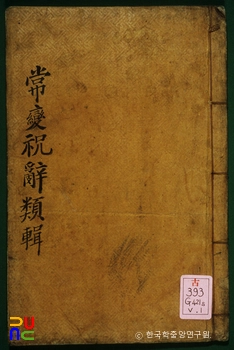 常變祝辭類輯
古
393
G421s
V.1
© 한국학중앙연구원